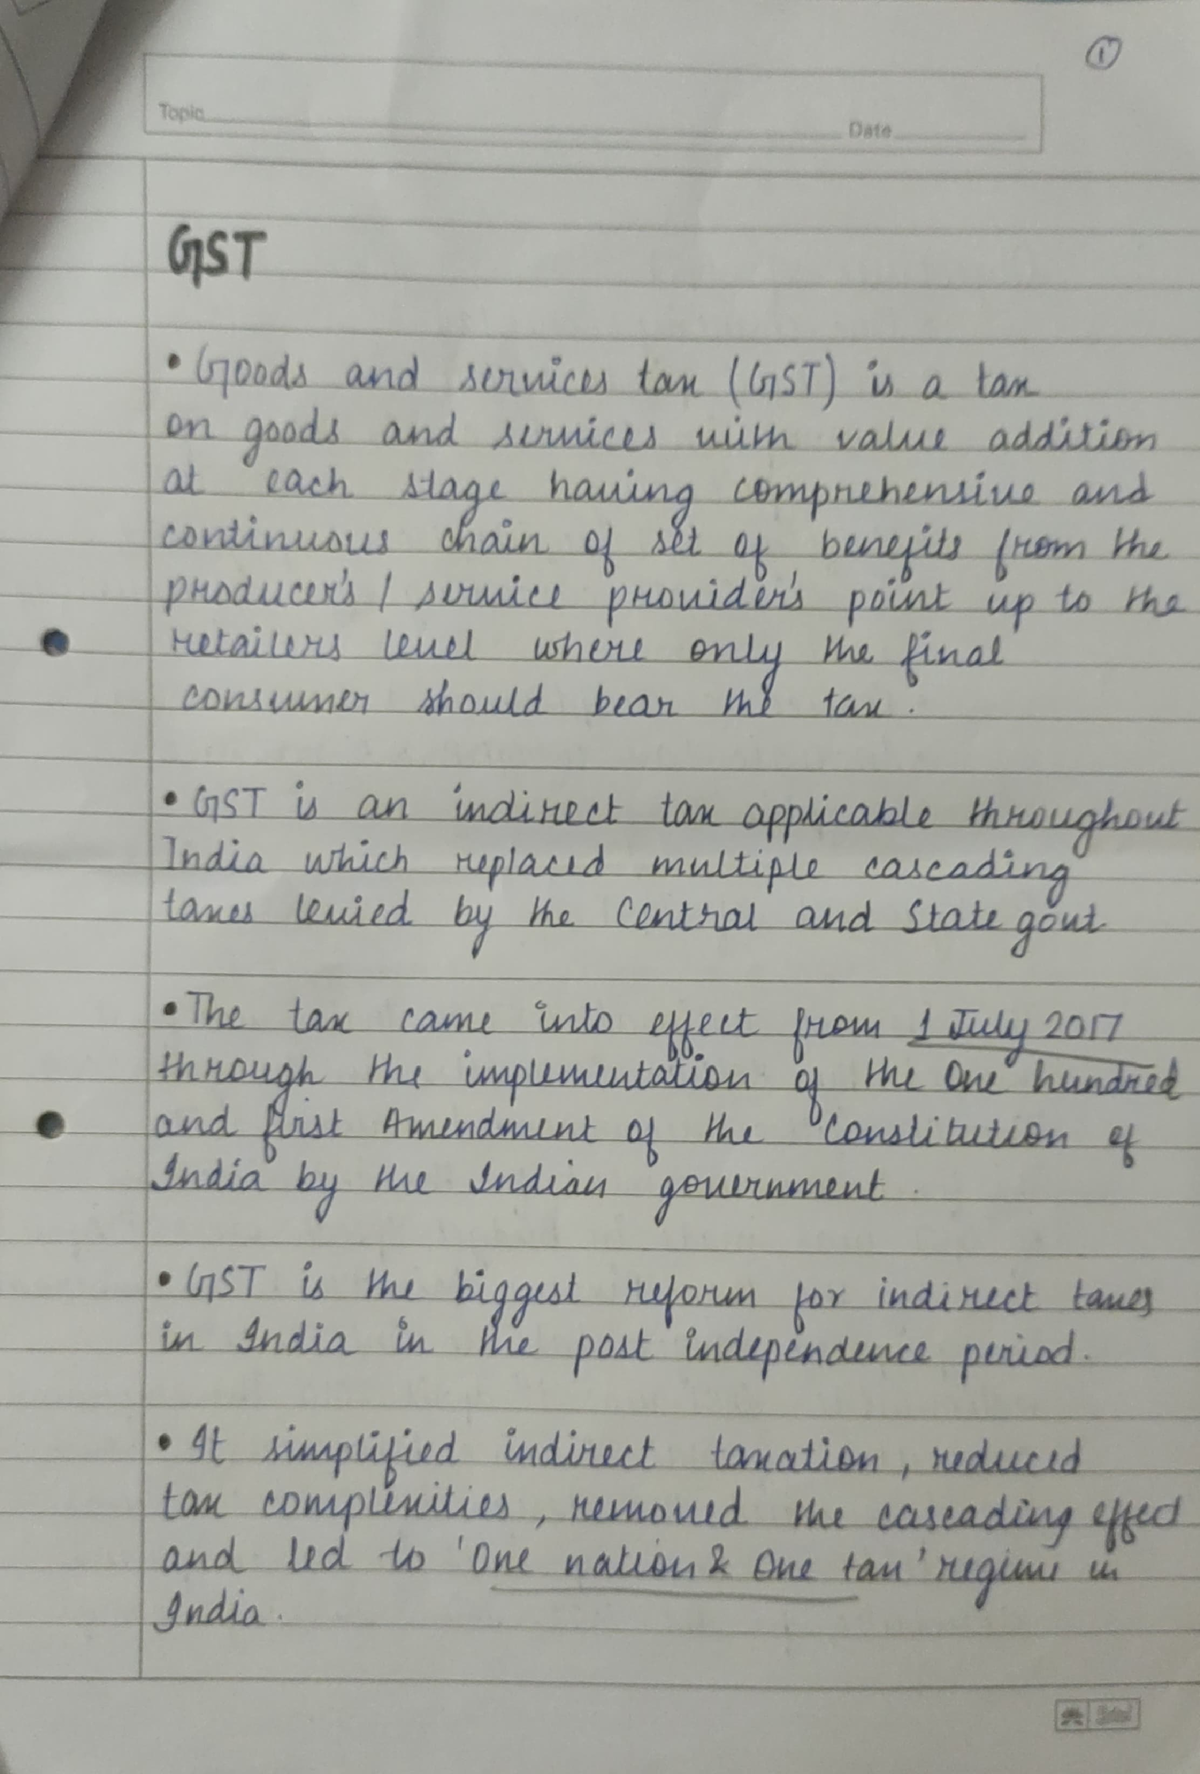 1
Topic
Date
GST
• Goods and services tax (GST) is a tax
on goods and services with value addition
at each stage having comprehensive and
continuous chain of set of benefits from the
producer's / service provider's point up to the
retailers level where only the final
consumer should bear the tax.
• GST is an indirect tax applicable throughout
India which replaced multiple cascading
taxes levied by the Central and State govt
• The tax came into effect from 1 July 2017
through the implementation of the One hundred
and first Amendment of the Constitution of
India by the Indian government.
• GST is the biggest reform for indirect taxes
in India in the post independence period.
• It simplified indirect taxation, reduced
tax complexities, removed the cascading effect
and led to 'One nation & One tax' regime in
India.